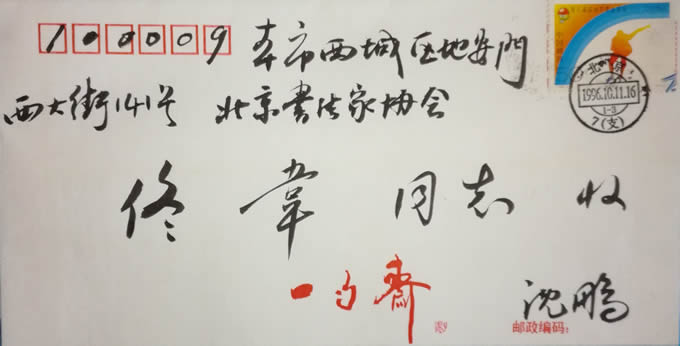 100009 本市西城区地安门
西大街141号 北京书法家协会
佟韦同志 收
一勺斋
沈鹏
邮政编码:
北京
1996.10.11.16
1-3
7(支)